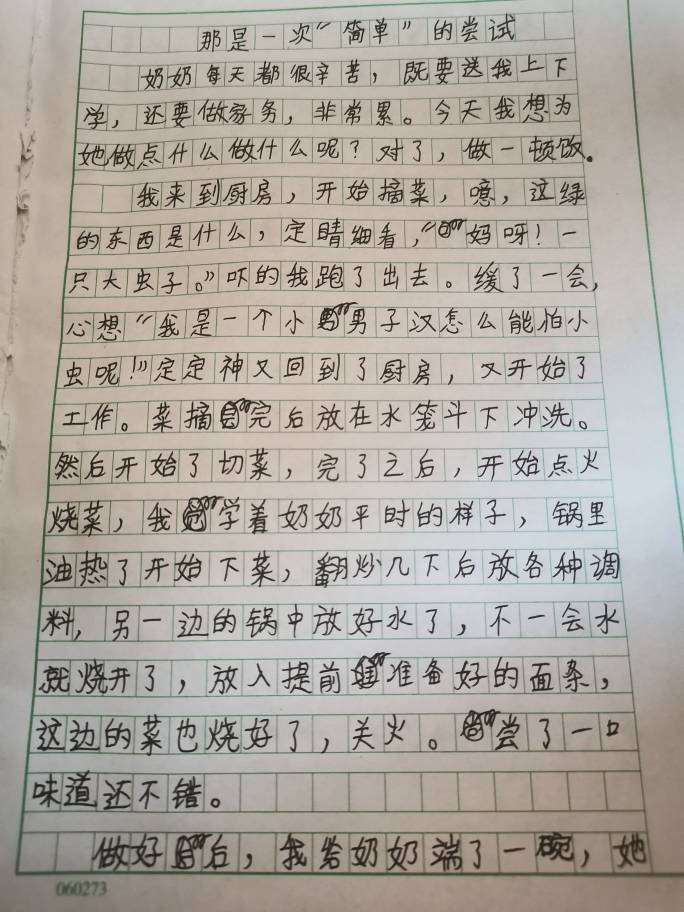 那是一次“简单”的尝试
奶奶每天都很辛苦，既要送我上下
学，还要做家务，非常累。今天我想为
她做点什么做什么呢？对了，做一顿饭。
我来到厨房，开始摘菜，噫，这绿
的东西是什么，定睛细看，“妈呀！一
只大虫子。”吓的我跑了出去。缓了一会，
心想“我是一个小男子汉怎么能怕小
虫呢！”定定神又回到了厨房，又开始了
工作。菜摘完后放在水笼斗下冲洗。
然后开始了切菜，完了之后，开始点火
烧菜，我学着奶奶平时的样子，锅里
油热了开始下菜，翻炒几下后放各种调
料，另一边的锅中放好水了，不一会水
就烧开了，放入提前准备好的面条，
这边的菜也烧好了，关火。尝了一口
味道还不错。
做好后，我给奶奶端了一碗，她
060273